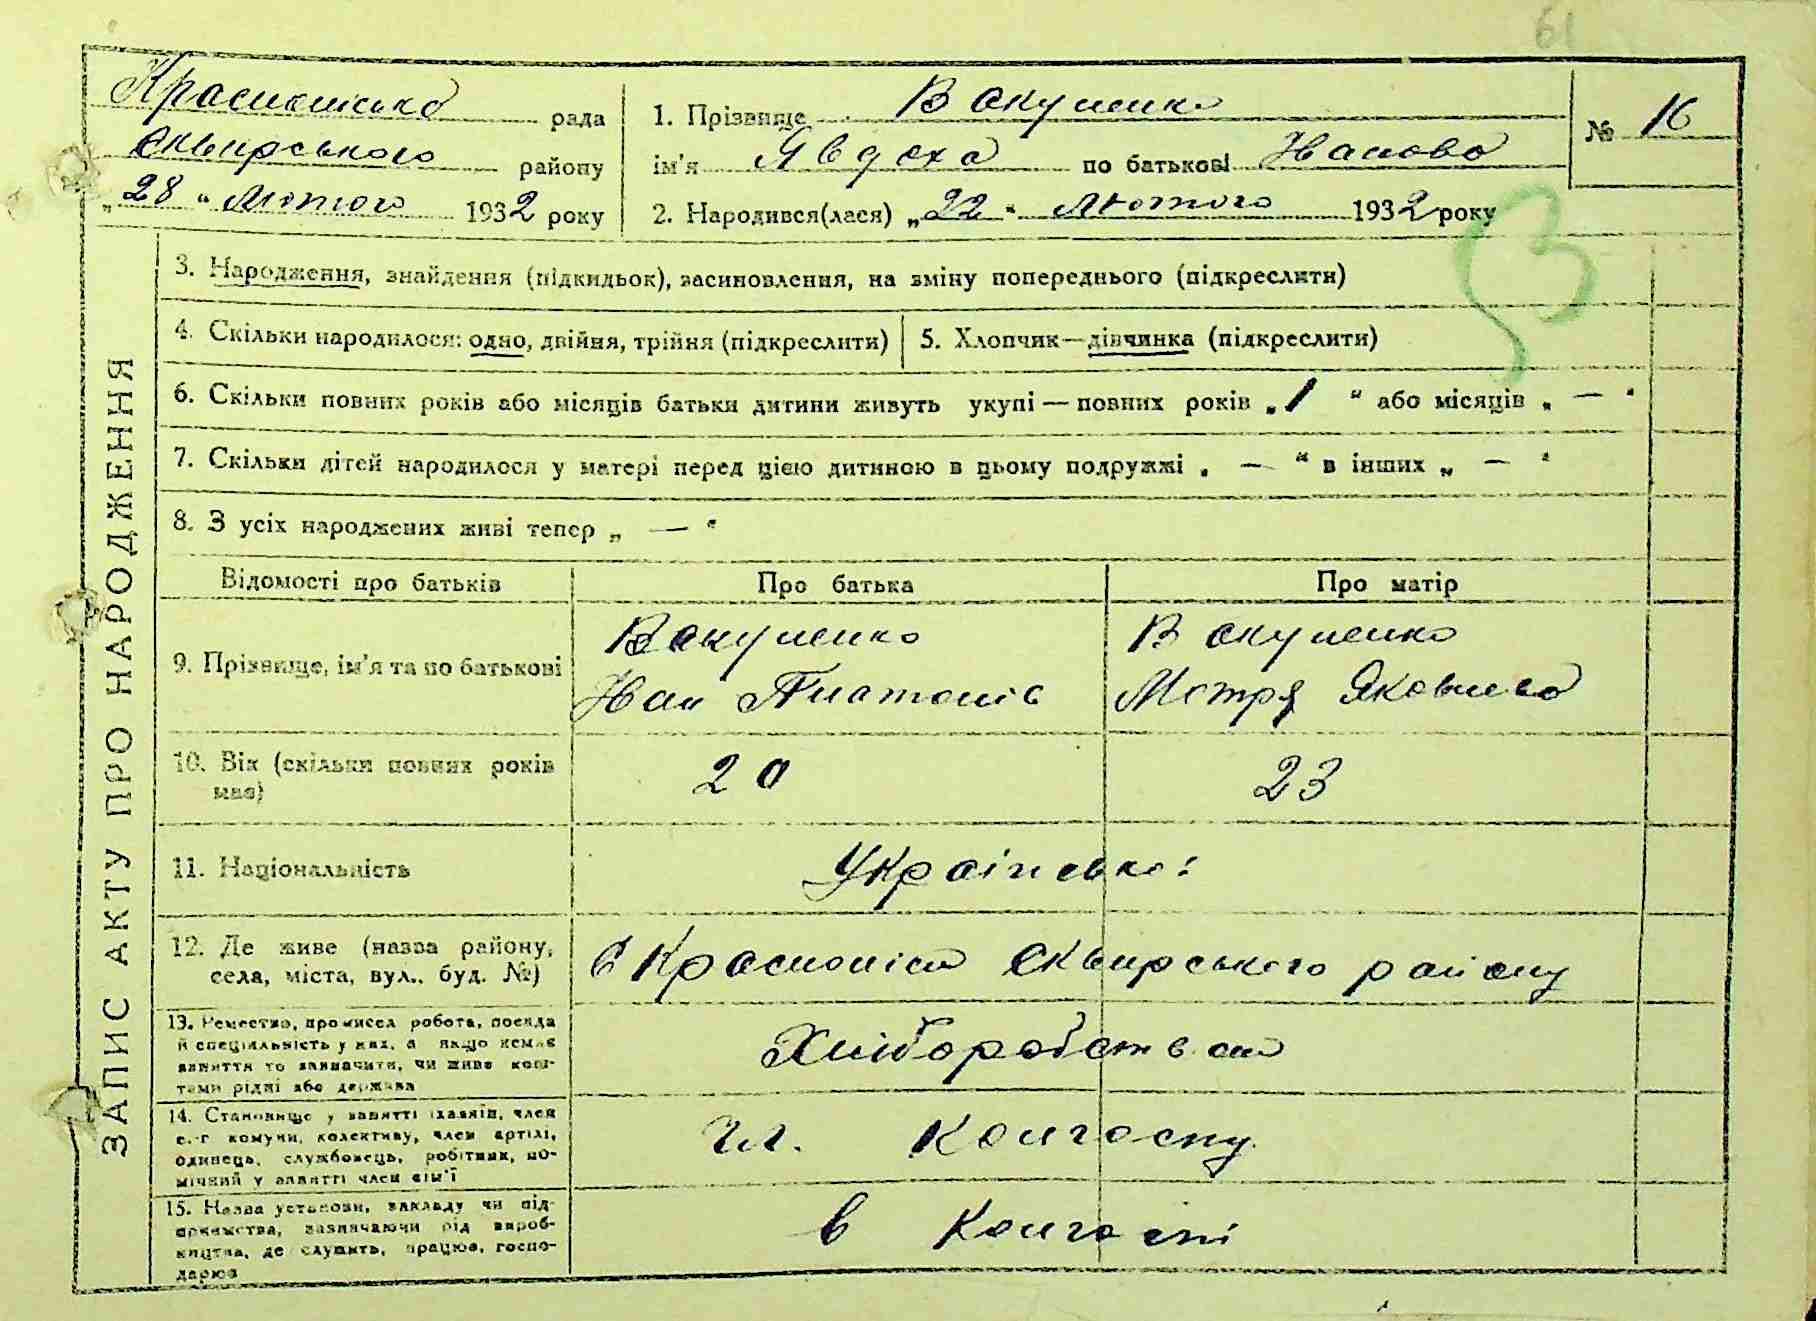 61
Краснянська рада
Сквирського району
„28“ Лютого 1932 року
1. Прізвище Вакуленко
ім'я Явдоха по батькові Іванова
2. Народився(лася) „22“ Лютого 1932 року
№ 16
ЗАПИС АКТУ ПРО НАРОДЖЕННЯ
3. Народження, знайдення (підкидьок), засиновлення, на зміну попереднього (підкреслити)
4. Скільки народилося: одно, двійня, трійня (підкреслити)
5. Хлопчик—дівчинка (підкреслити)
6. Скільки повних років або місяців батьки дитини живуть укупі—повних років „1“ або місяців „—“
7. Скільки дітей народилося у матері перед цією дитиною в цьому подружжі „—“ в інших „—“
8. З усіх народжених живі тепер „—“
Відомості про батьків
Про батька
Про матір
9. Прізвище, ім'я та по батькові
Вакуленко
Іван Платонів
Вакуленко
Мотря Яковлева
10. Вік (скільки повних років
має)
20
23
11. Національність
Української
12. Де живе (назва району,
села, міста, вул., буд. №)
с Краснолісы Сквирського району
13. Ремество, промисел робота, посада
й спеціяльність у них, а якщо немає
заняття то зазначити, чи живе кош-
тами рідні або держава
Хліборобством
14. Становище у занятті (хазяїн, член
с.-г комуни, колективу, член артілі,
одинець, службовець, робітник, по-
мічний у занятті член сім'ї
чл. Колгоспу
15. Назва установи, закладу чи під-
приємства, зазначаючи рід вироб-
ництва, де служить, працює, госпо-
дарює
в Колгоспі